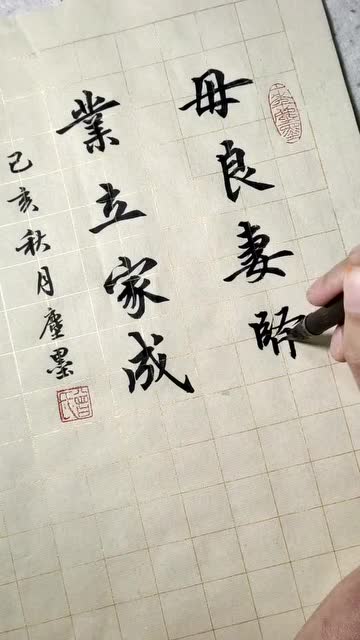 母良妻
業立家成
己亥秋月塵墨